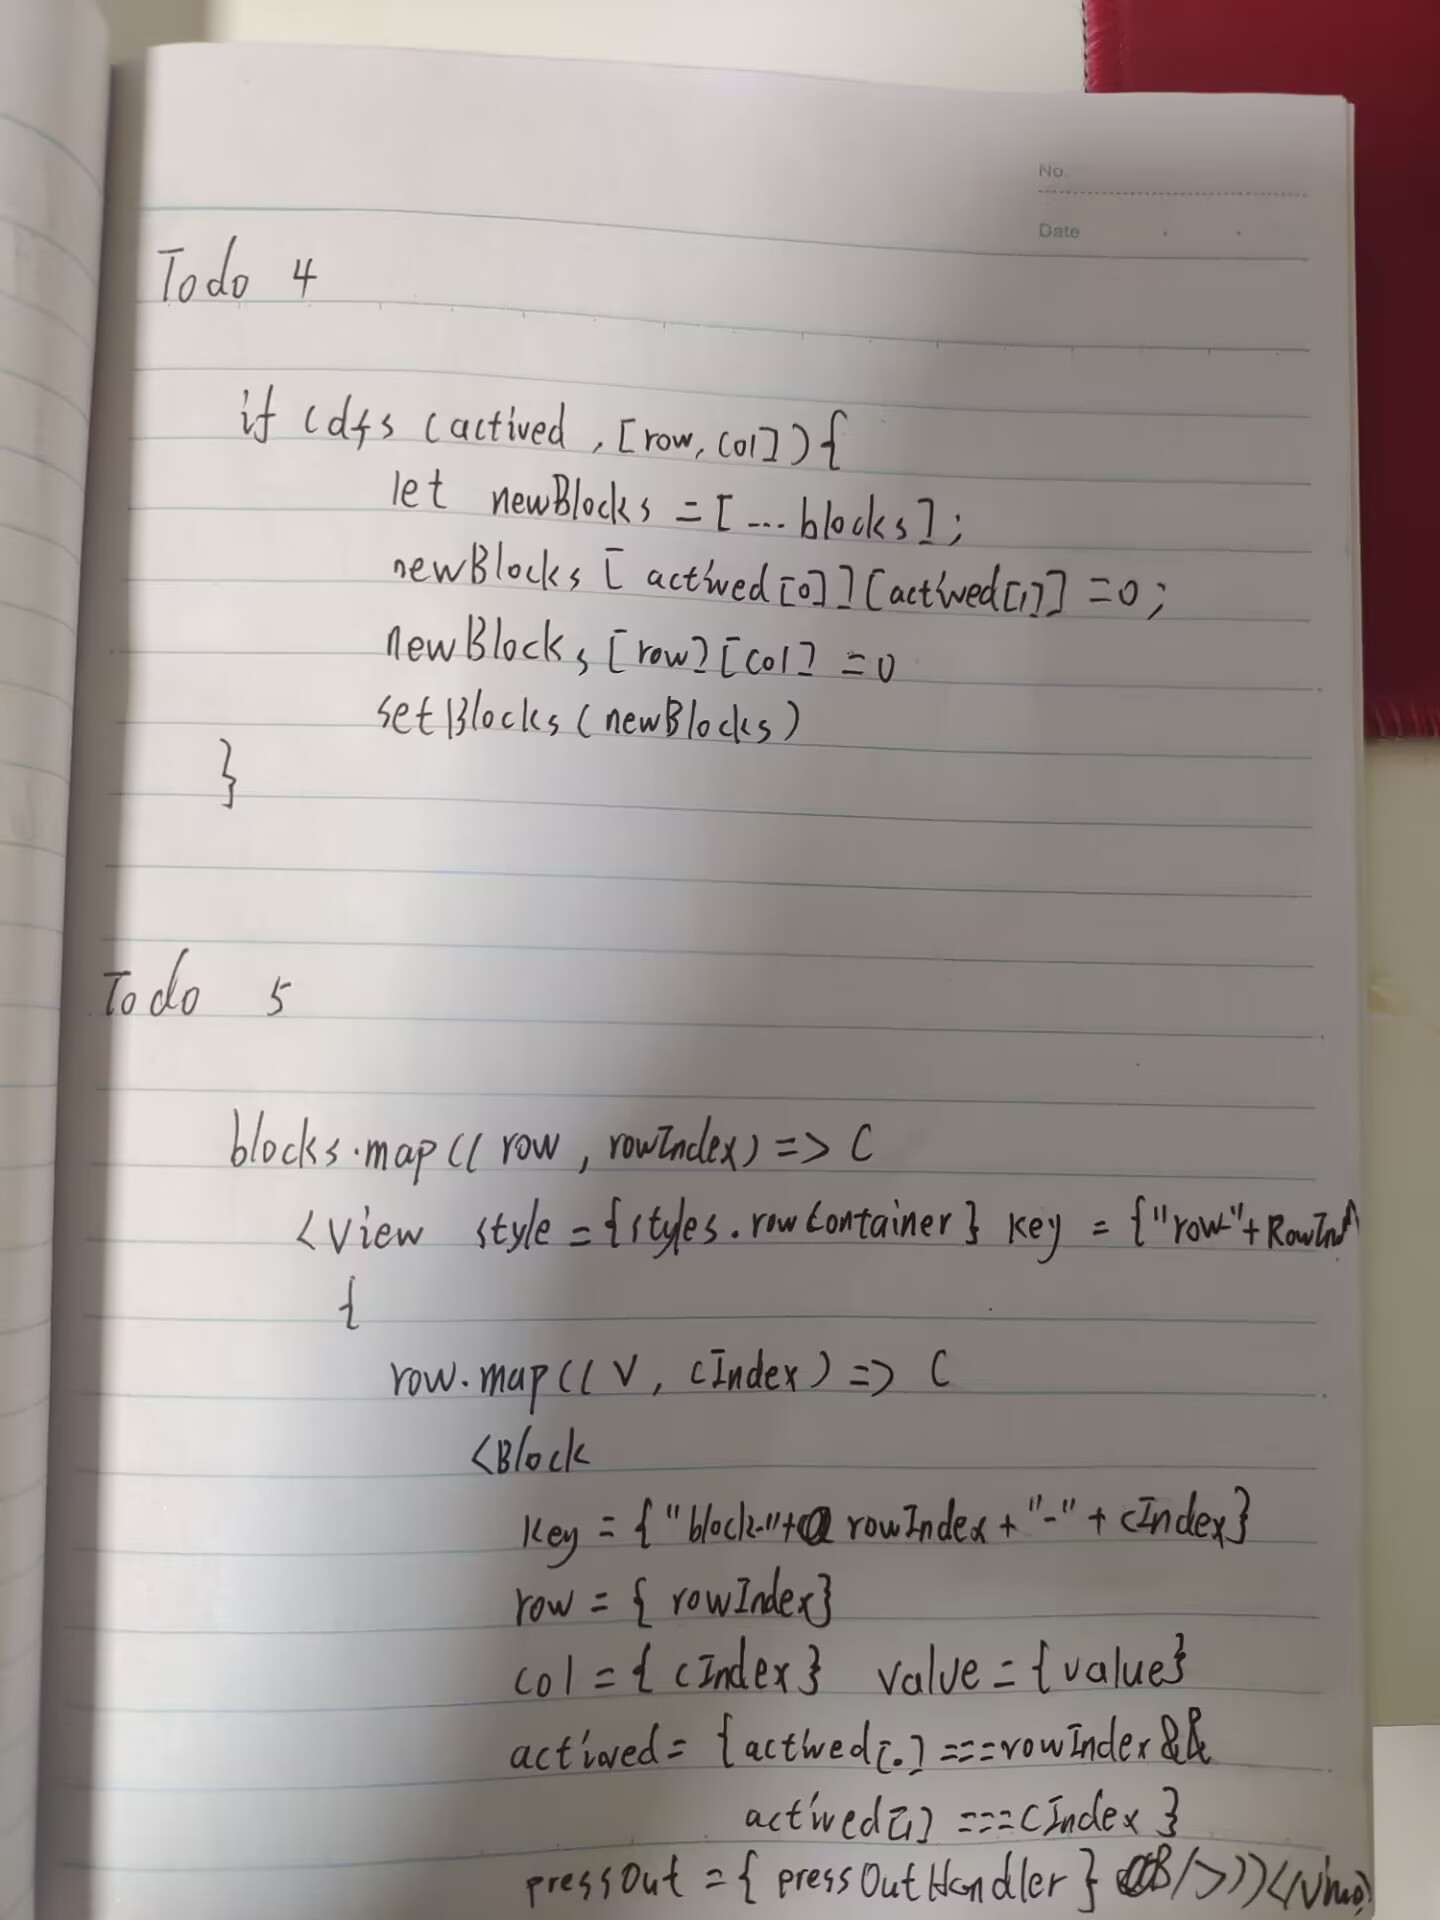 No.
Date
Todo 4
if (dfs (actived, [row, col]) {
let newBlocks = [...blocks];
newBlocks [actived[0]][actived[1]] = 0;
newBlocks [row][col] = 0
setBlocks (newBlocks)
}
Todo 5
blocks.map(( row, rowIndex) => (
<View style = {styles.rowContainer} key = {"row-"+ RowInd
{
row.map(( v, cIndex) => (
<Block
key = {"block-"+ rowIndex + "-" + cIndex}
row = { rowIndex}
col = { cIndex } value = {value}
actived = {actived[0] === rowIndex &&
actived[1] === cIndex }
pressOut = { pressOutHandler } />))